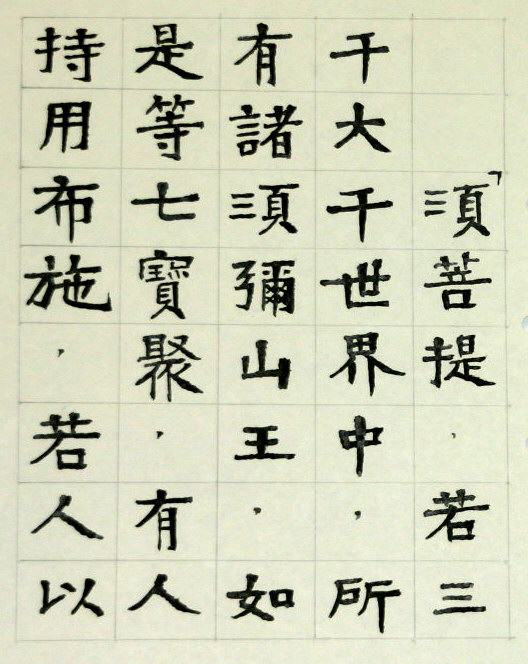 「須菩提，若三
千大千世界中，所
有諸須彌山王，如
是等七寶聚，有人
持用布施，若人以